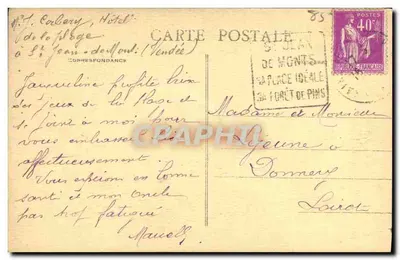 Hôtel
de la plage
à St Jean-de-Mont (Vendée)
CARTE POSTALE
CORRESPONDANCE
85
POSTES
40c
ST JEAN
DE MONTS
SA PLAGE IDÉALE
SA FORÊT DE PINS
Jacqueline profite bien
des jeux de la plage et
se joint à moi pour
vous embrasser
affectueusement
Vous espérons en bonne
santé et mon oncle
pas trop fatigué
Madame et Monsieur
Yeune à
Donnery
Loiret
CARTHAPHILE